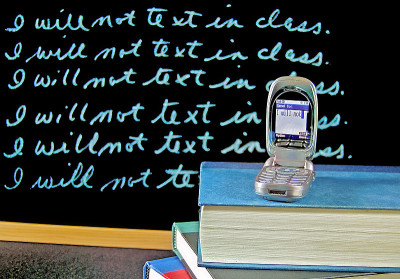 I will not text in class.
I will not text in class.
I will not text in class.
I will not text in class.
I will not text in class.
I will not te
I will not